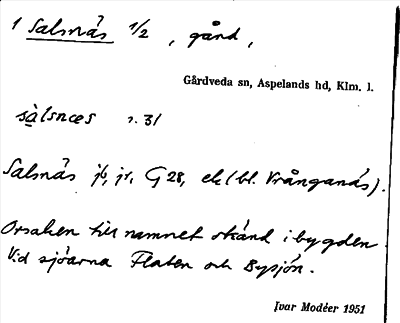 1 Salsnäs 1/2, gård,
Gårdveda sn, Aspelands hd, Klm. l.
sàlsnæs r. 31
Salsnäs jb, jr, G 28, ek (bl. Vrånganäs).
Orsaken till namnet okänd i bygden.
Vid sjöarna Flaten och Bysjön.
Ivar Modéer 1951